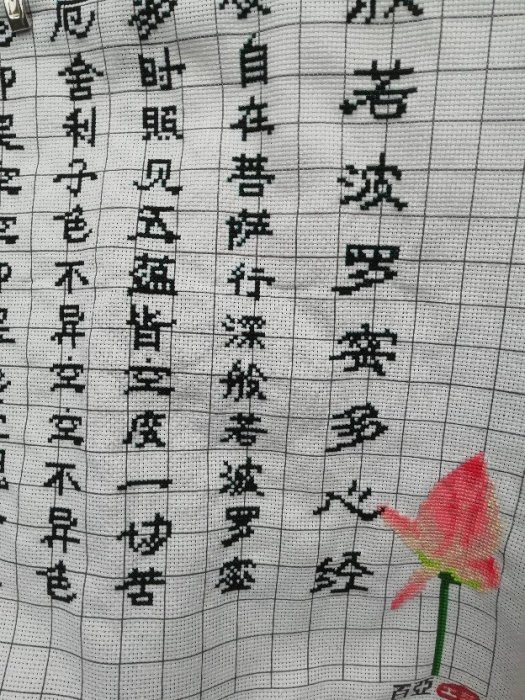 若波罗蜜多心经
自在菩萨行深般若波罗蜜
多时照见五蕴皆空度一切苦
厄舍利子色不异空空不异色